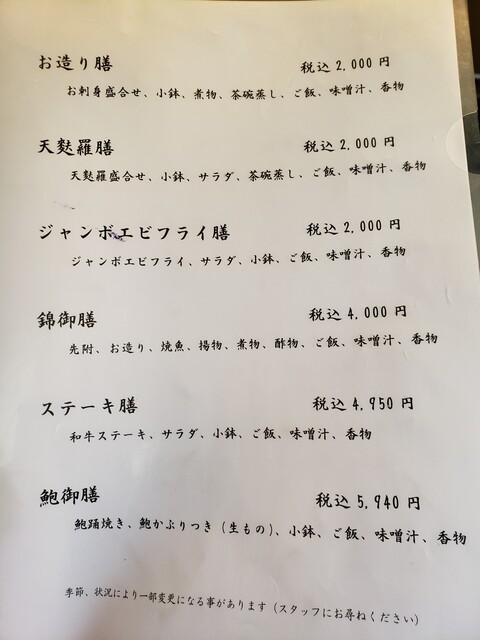 お造り膳 税込 2,000 円
お刺身盛合せ、小鉢、煮物、茶碗蒸し、ご飯、味噌汁、香物
天麩羅膳 税込 2,000 円
天麩羅盛合せ、小鉢、サラダ、茶碗蒸し、ご飯、味噌汁、香物
ジャンボエビフライ膳 税込 2,000 円
ジャンボエビフライ、サラダ、小鉢、ご飯、味噌汁、香物
錦御膳 税込 4,000 円
先附、お造り、焼魚、揚物、煮物、酢物、ご飯、味噌汁、香物
ステーキ膳 税込 4,950 円
和牛ステーキ、サラダ、小鉢、ご飯、味噌汁、香物
鮑御膳 税込 5,940 円
鮑踊焼き、鮑かぶりつき（生もの）、小鉢、ご飯、味噌汁、香物
季節、状況により一部変更になる事があります（スタッフにお尋ねください）